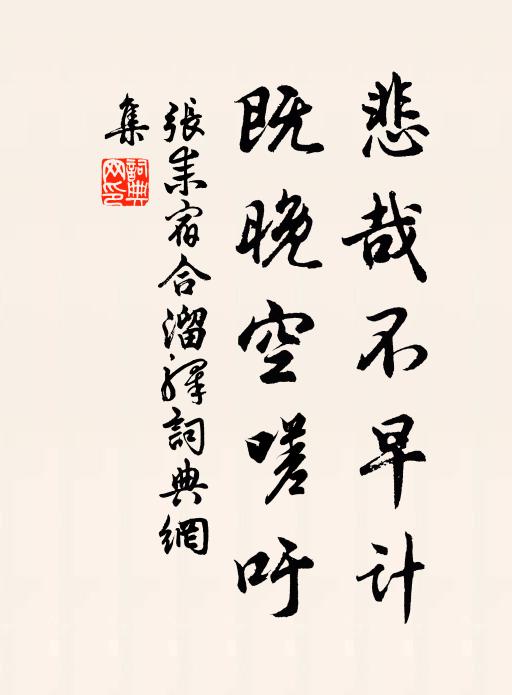 悲哉不早計
既晚空嗟吁
張耒宿合溜驛詞典網
集
詞典
網印